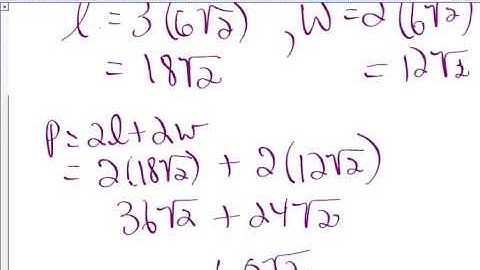 l = 3(6√2) , W = 2(6√2)
= 18√2 = 12√2
P = 2l + 2w
= 2(18√2) + 2(12√2)
36√2 + 24√2